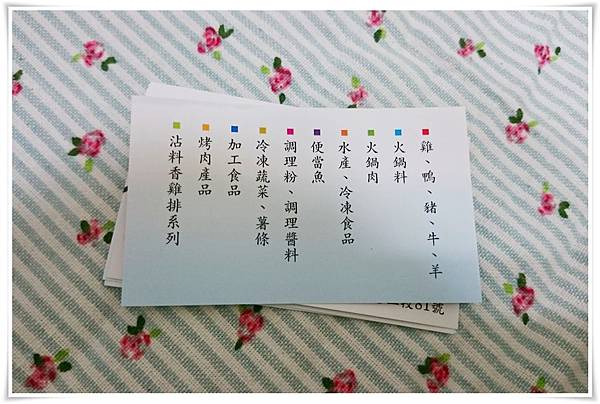 雞、鴨、豬、牛、羊
火鍋料
火鍋肉
水產、冷凍食品
便當魚
調理粉、調理醬料
冷凍蔬菜、薯條
加工食品
烤肉產品
沾料香雞排系列
81號